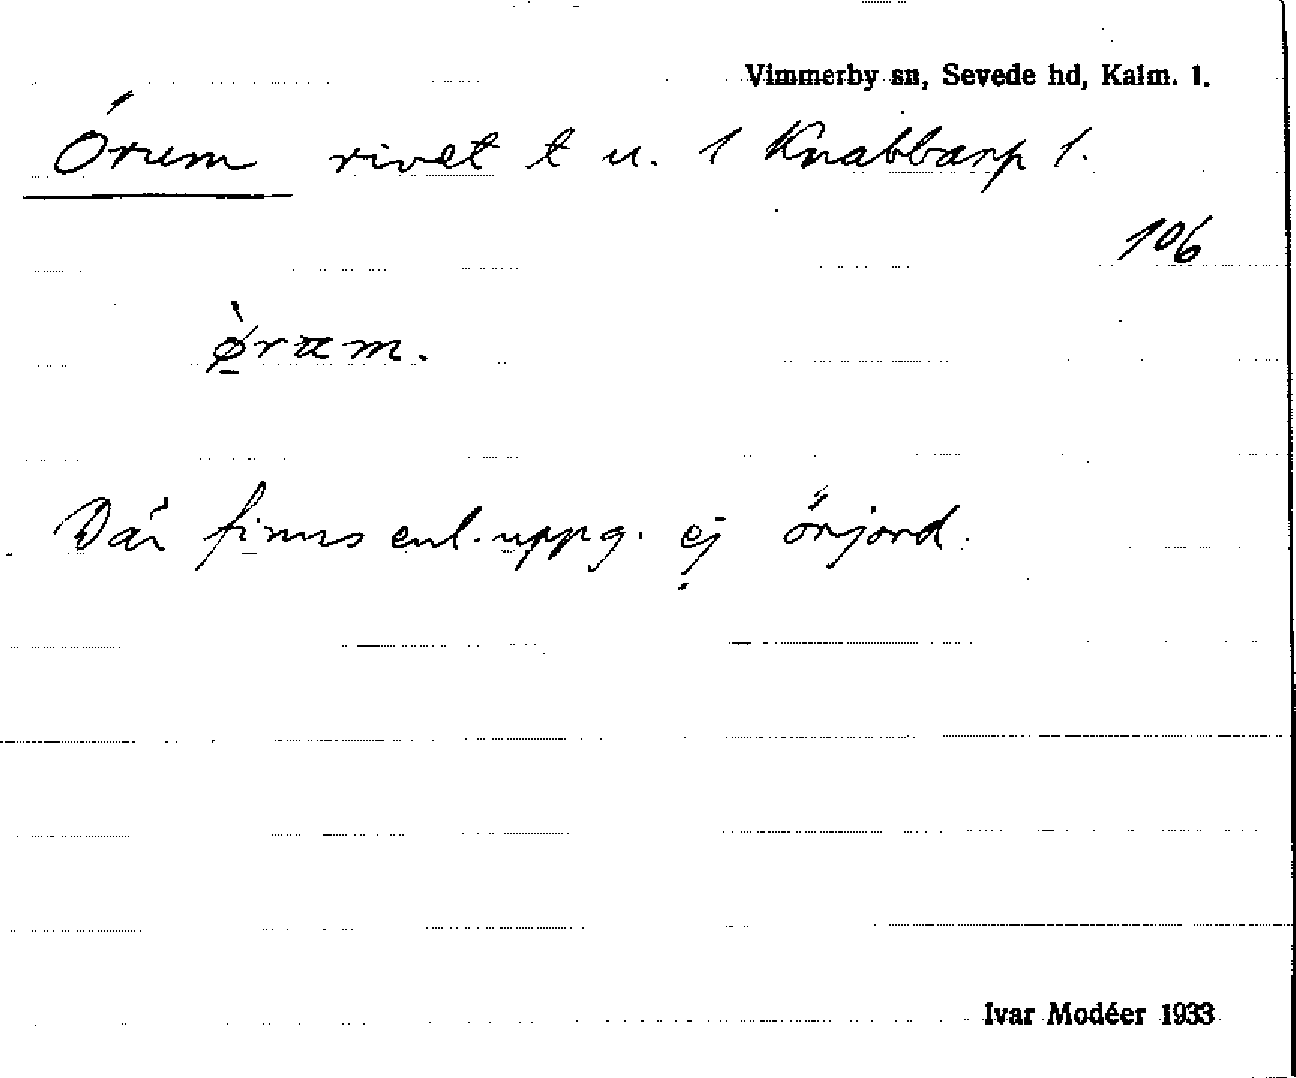 Vimmerby sn, Sevede hd, Kalm. l.
Örum rivet t u. 1 Knabbarp 1.
106
Där finns enl. uppg. ej örjord.
Ivar Modéer 1933